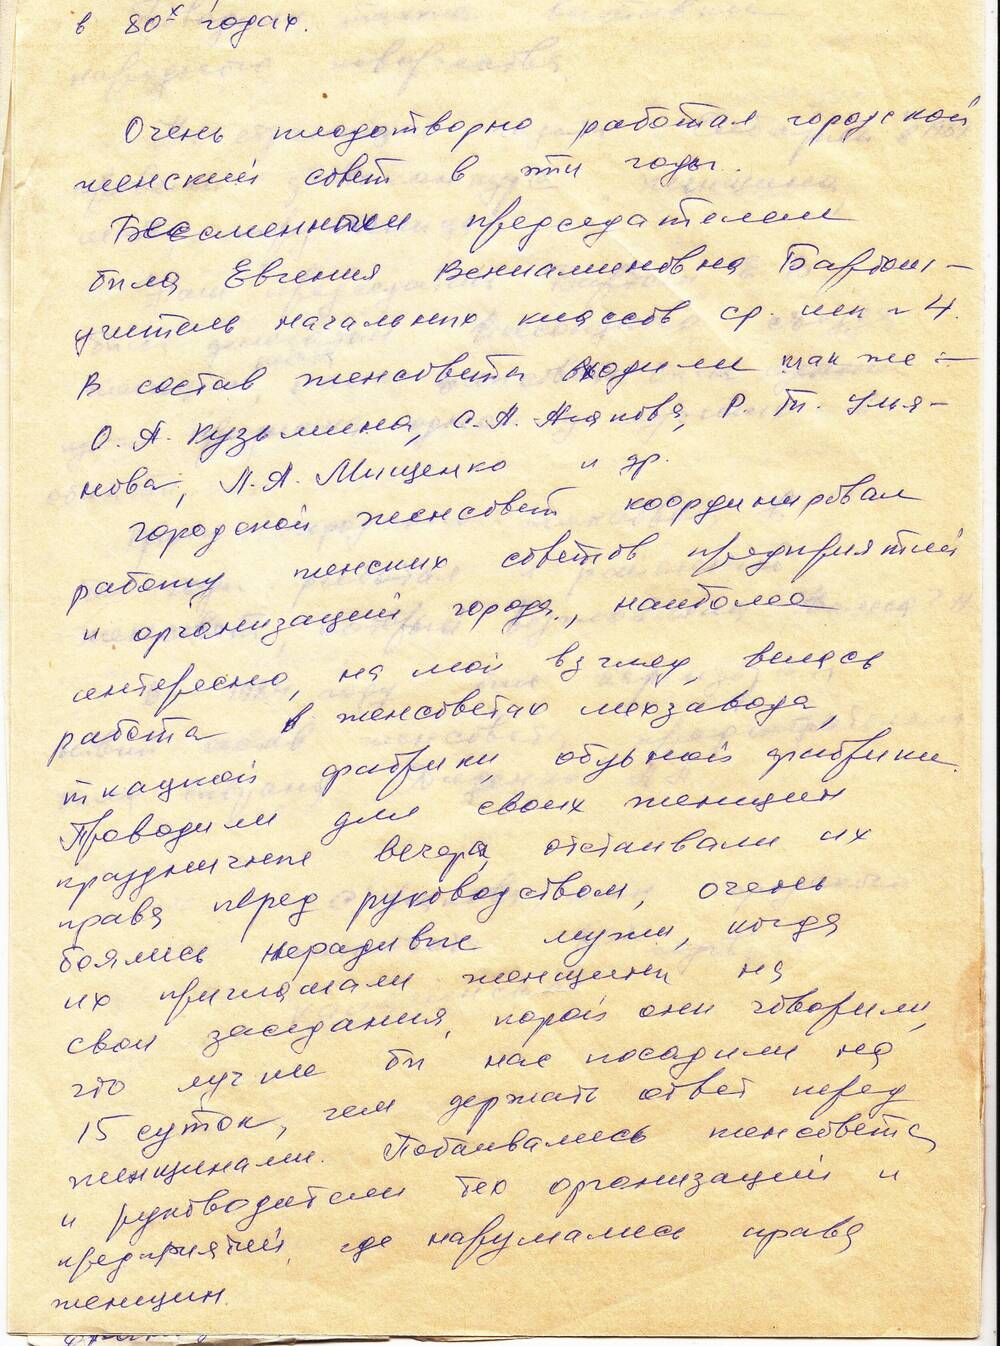 в 80х годах.
Очень плодотворно работал городской
женский совет в эти годы.
Бессменным председателем
была Евгения Вениаминовна Барбош-
учитель начальных классов ср. шк № 4.
В состав женсовета входили так же :-
О. А. Кузьмина, С. А. Агапова, Р. П. Улья-
нова, Л. А. Мищенко и др.
Городской женсовет координировал
работу женских советов предприятий
и организаций города, наиболее
интересно, на мой взгляд, велась
работа в женсоветах мехзавода,
ткацкой фабрики, обувной фабрики.
Проводили для своих женщин
праздничные вечера, отстаивали их
права перед руководством, очень
боялись нерадивые мужи, когда
их приглашали женщины на
свои заседания, порой они говорили,
что лучше бы нас посадили на
15 суток, чем держать ответ перед
женщинами. Побаивались женсовета
и руководители тех организаций и
предприятий, где нарушались права
женщин.